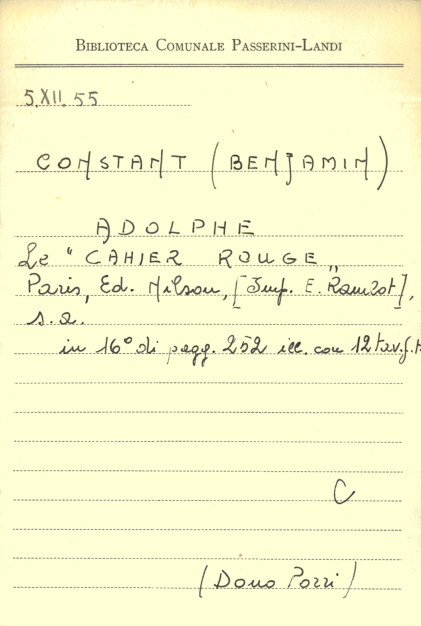 BIBLIOTECA COMUNALE PASSERINI-LANDI
5.XII.55
CONSTANT (BENJAMIN)
ADOLPHE
Le "CAHIER ROUGE„
Paris, Ed. Nilson, [Imp. E. Ramlot],
s.a.
in 16° di pagg. 252 ill. con 12 tav. f.t
C
(Dono Pozzi)